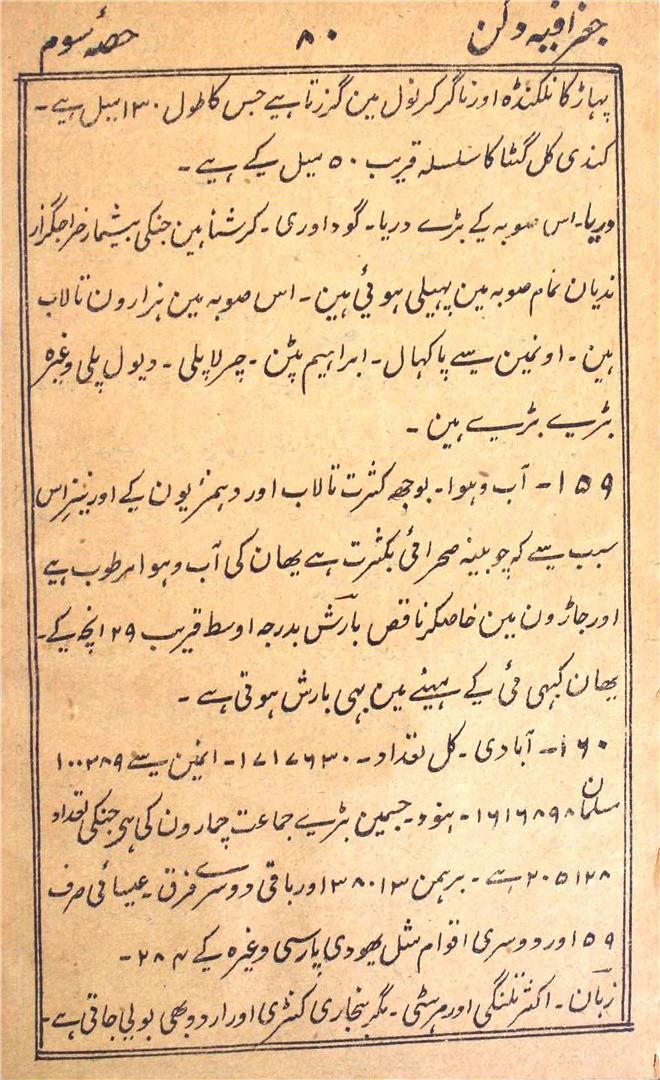 جغرافیہ دکن ۸۰ حصۂ سوم
پہاڑ کا نلکنڈہ اور ناگر کرنول مین گزرتا ہے جس کا طول ۱۳۰ میل ہے ۔
کندی کل گٹا کا سلسلہ قریب ۵۰ میل کے ہے ۔
دریا۔ اس صوبہ کے بڑے دریا ۔ گوداوری ۔ کرشنا ہین جنکی بیشمار خراجگزار
ندیان تمام صوبہ مین پہیلی ہوئی ہین ۔ اس صوبہ مین ہزارون تالاب
ہین ۔ اونمین سے پاکہال ۔ ابراہیم پٹن ۔ چرلا پلی ۔ دیول پلی وغیرہ
بڑے بڑے ہین ۔
۱۵۹ ۔ آب وہوا ۔ بوجھ کثرت تالاب اور دہمڑیون کے اور نیز اس
سبب سے کہ چوبینہ صحرائی بکثرت ہے یھان کی آب وہوا مرطوب ہے
اور جاڑون مین خاصکر ناقص بارش بدرجہ اوسط قریب ۲۹ انچ کے ۔
یھان کبہی مئی کے مہینے مین بہی بارش ہوتی ہے ۔
۱۶۰ ۔ آبادی ۔ کل تعداد ۔ ۱۷۱۷۶۳۰ ۔ انمین سے ۱۰۰۲۸۹
مسلمان ۱۶۱۶۸۹۸ ۔ ہنود ۔ جسمین بڑے جماعت چمارون کی ہی جنکی تعداد
۲۰۵۱۲۸ ہے ۔ برہمن ۳۸۰۱۳ اور باقی دوسرے فرق ۔ عیسائی صرف
۱۵۹ اور دوسری اقوام مثل یھودی پارسی وغیرہ کے ۲۸۴ ۔
زبان ۔ اکثر تلنگی اور مرہٹی ۔ مگر بنجاری کنٹری اور اردو بھی بولی جاتی ہے ۔